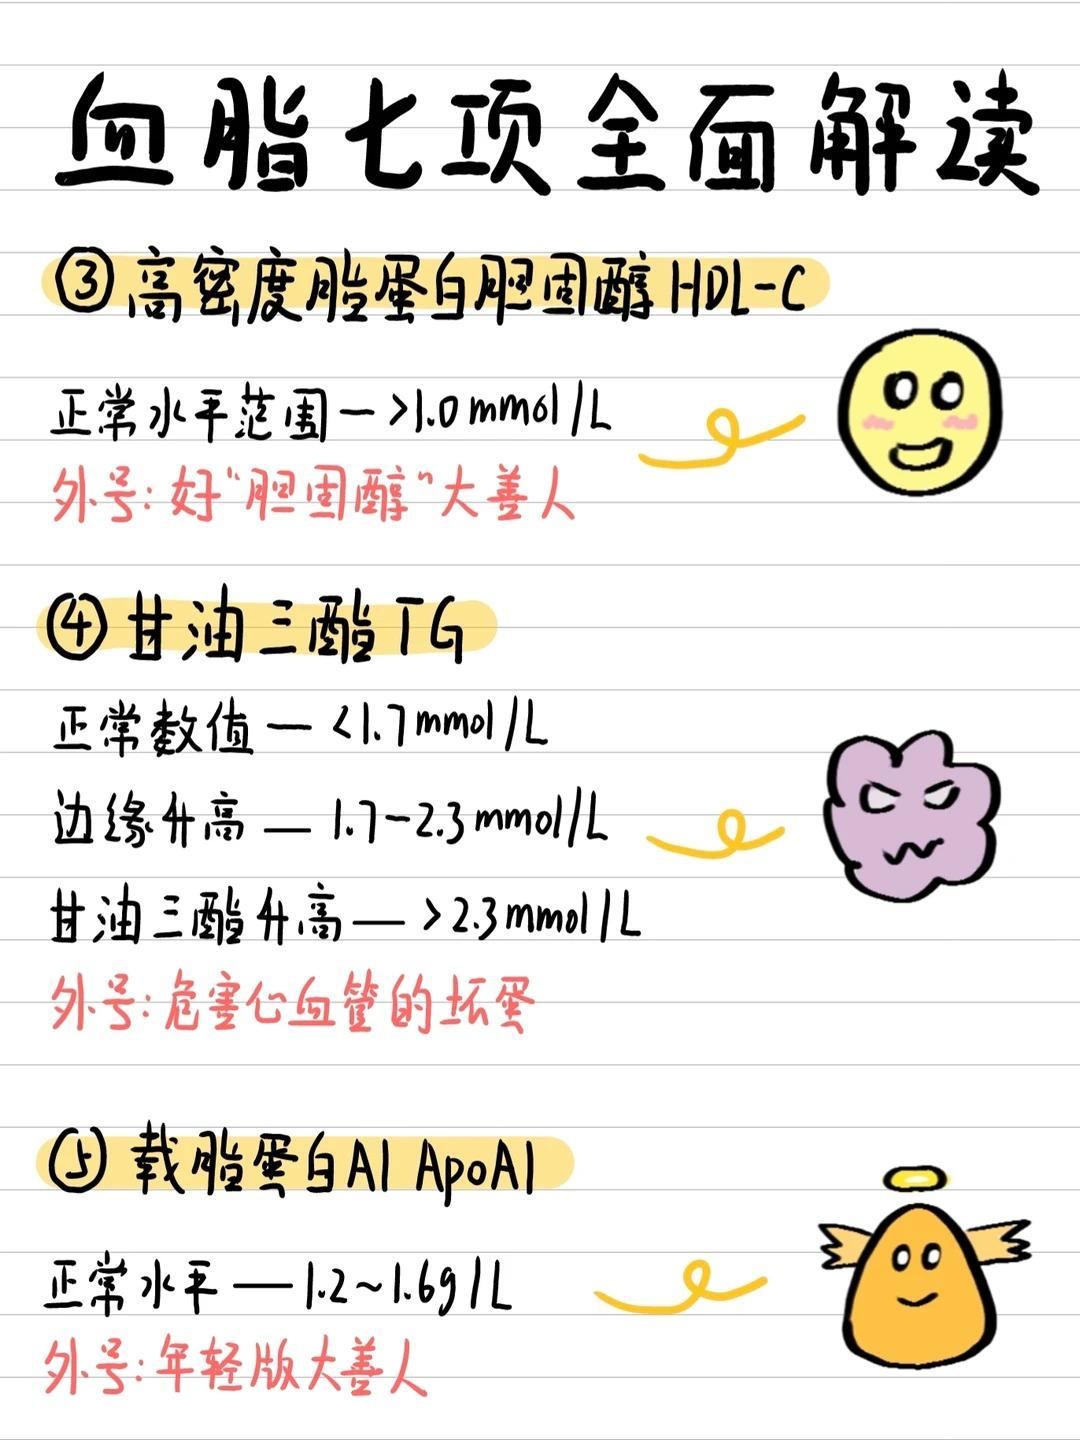 血脂七项全面解读
③高密度脂蛋白胆固醇HDL-C
正常水平范围—>1.0mmol/L
外号:好“胆固醇”大善人
④甘油三酯TG
正常数值—<1.7mmol/L
边缘升高—1.7-2.3mmol/L
甘油三酯升高—>2.3mmol/L
外号:危害心血管的坏蛋
⑤载脂蛋白A1 ApoA1
正常水平—1.2~1.6g/L
外号:年轻版大善人